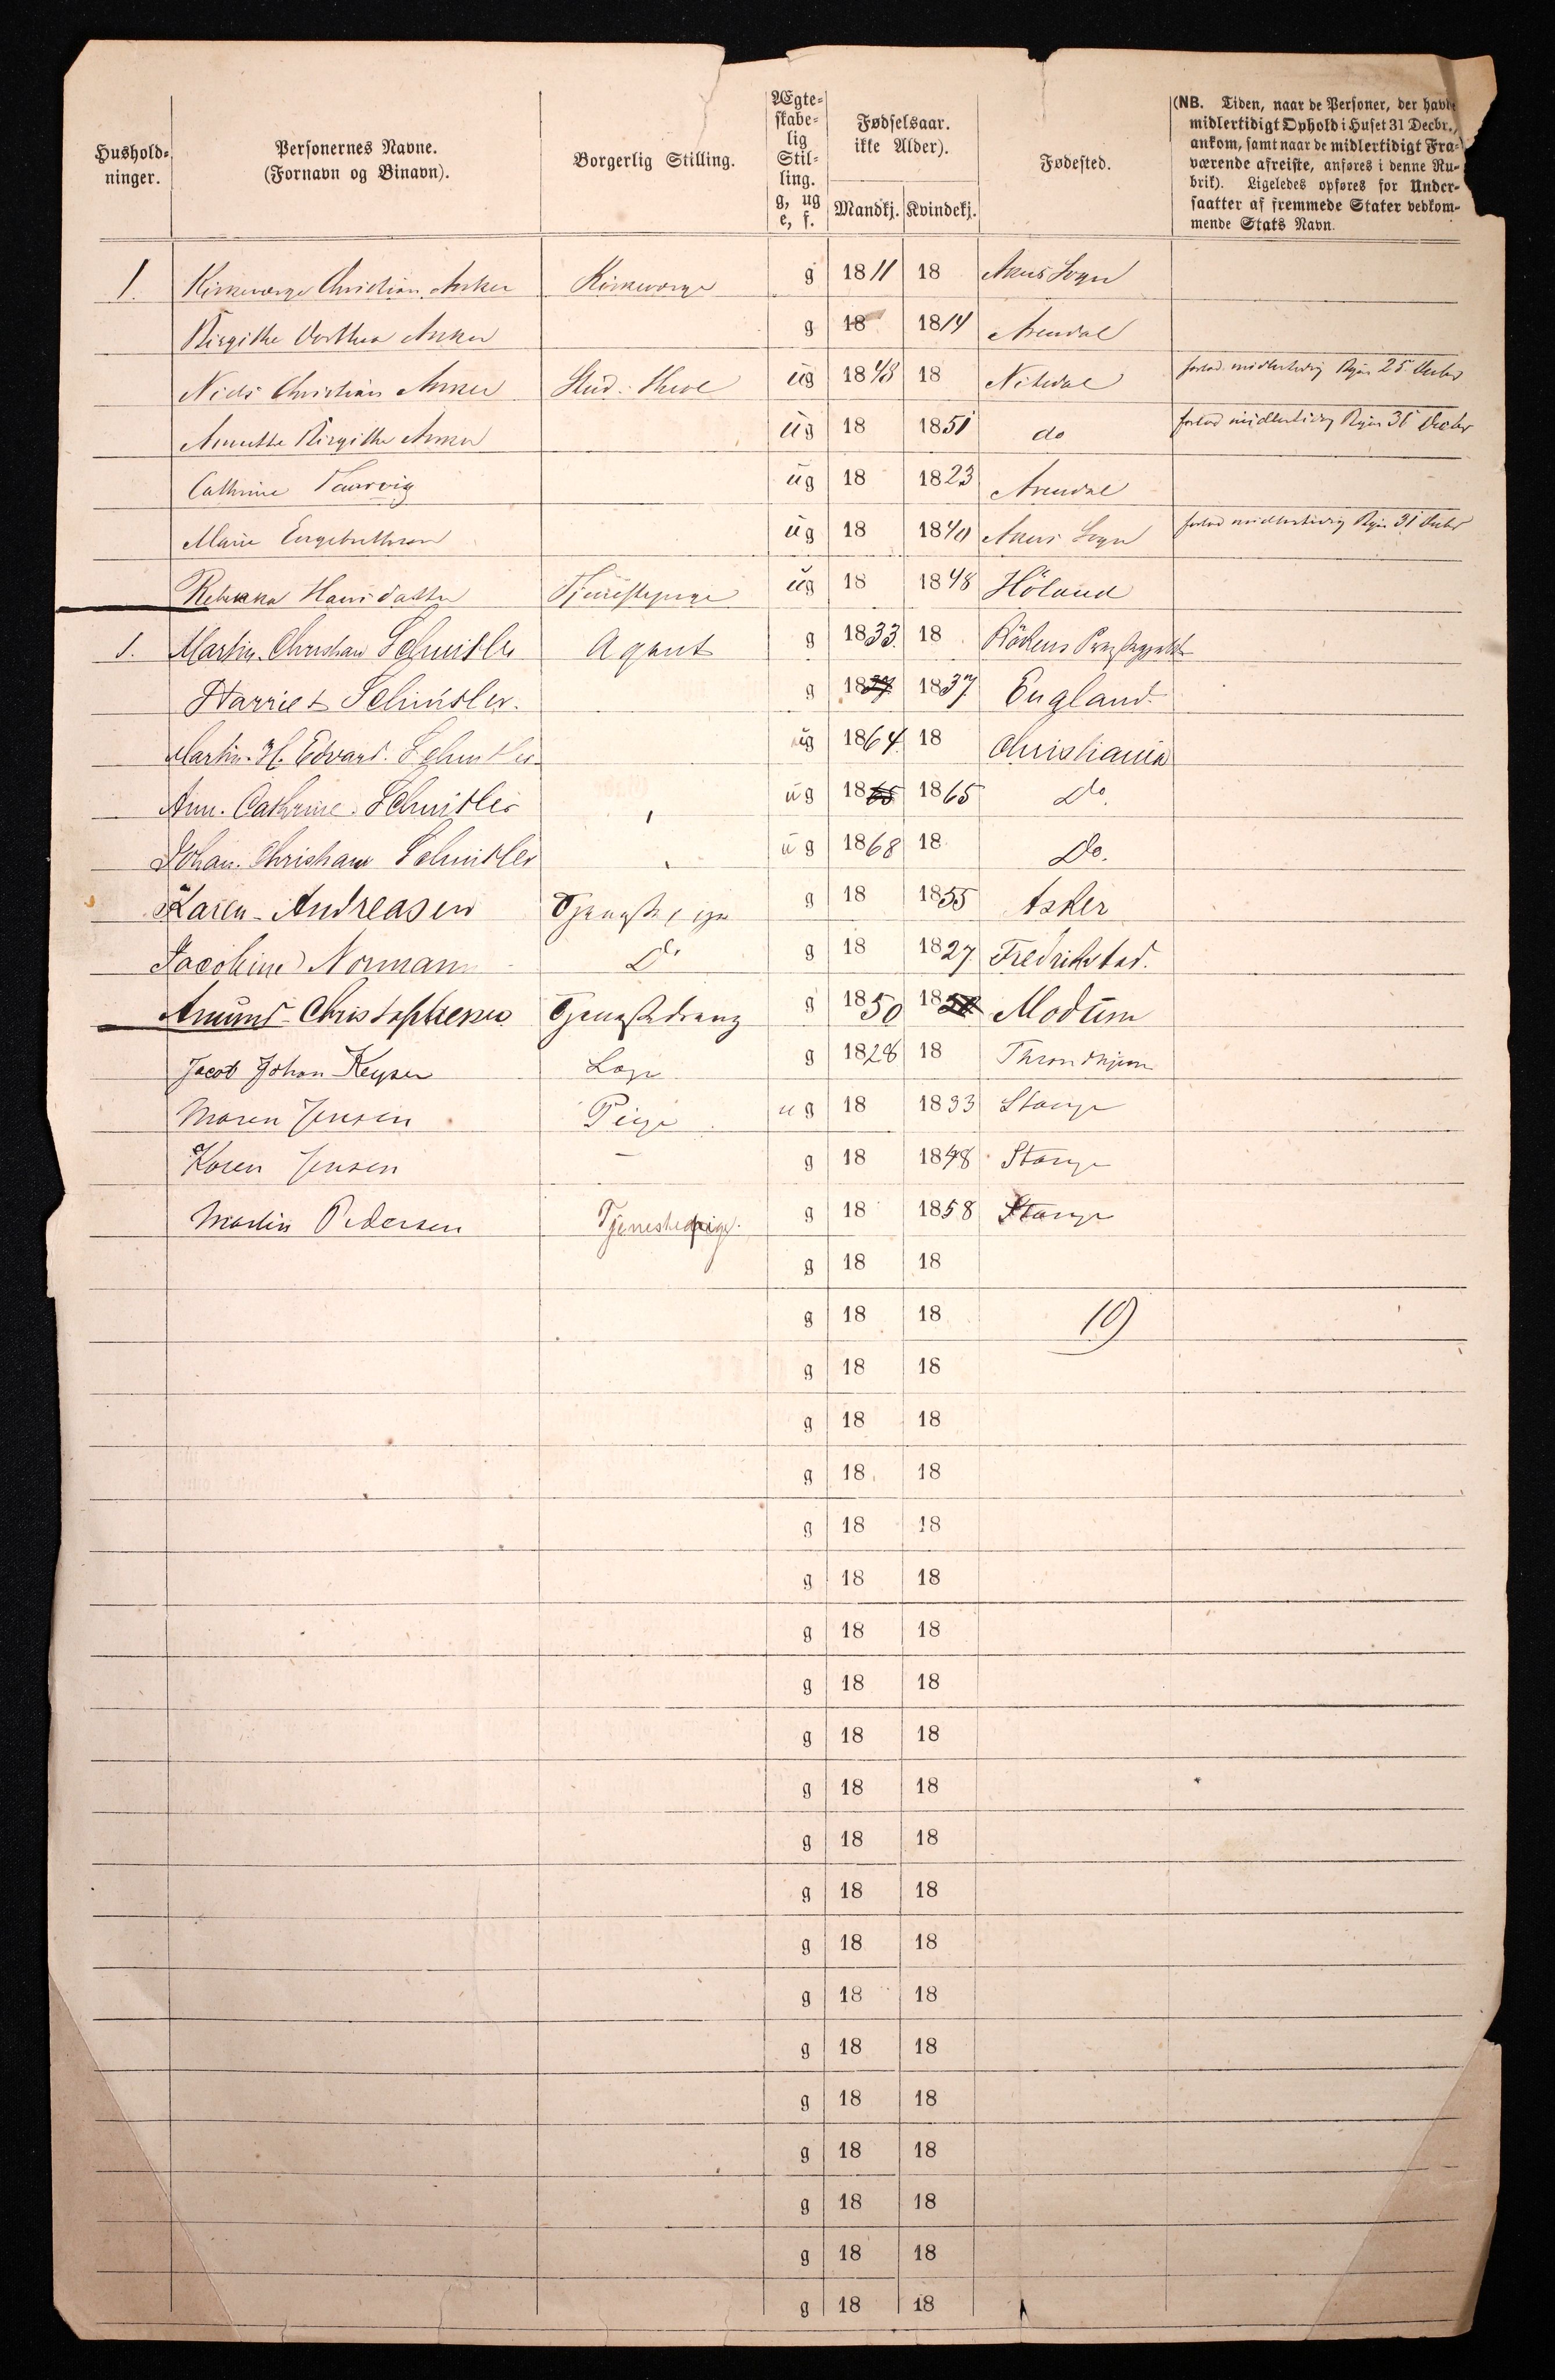 Hushold-
ninger.
Personernes Navne.
(Fornavn og Binavn).
Borgerlig Stilling.
Ægte-
skabe-
lig
Stil-
ling.
g, ug
e, f.
Fødselsaar.
ikke Alder).
Mandkj. Kvindekj.
Fødested.
(NB. Tiden, naar de Personer, der havde
midlertidigt Ophold i Huset 31 Decbr.,
ankom, samt naar de midlertidigt Fra-
værende afreiste, anføres i denne Ru-
brik). Ligeledes opføres for Under-
saatter af fremmede Stater vedkom-
mende Stats Navn.
1. Kirkeværge Christian Anker Kirkeværge g 1811 18 Akers Sogn
Birgithe Dorthea Anker g 18 1814 Arendal
Niels Christian Anker Stud. Theol ug 1848 18 Nitedal forlod midlertidig Byen 25 Decbr
Annette Birgitha Anker ug 18 1851 do forlod midlertidig Byen 31 Decbr
Cathrine ug 18 1823 Arendal
Marie Engebrethsen ug 18 1840 Akers Sogn forlod midlertidig Byen 31 Decbr
Rebekka Hansdatter Tjenestepige ug 18 1848 Höland
1. Martin Christian Schnitler Agent g 1833 18 Rökens Præstegjeld
Harriet Schnitler. g 18 1837 England
Martin. H. Edvard. Schnitler ug 1864 18 Christiania
Ann. Cathrine. Schnitler ug 1865 1865 Do.
Johan. Christian Schnitler ug 1868 18 Do.
Karen Andreasen Tjenestepige g 18 1855 Asker
Jacobine Normann Do g 18 1827 Fredrikstad.
Amund Christophersen Tjenestedreng g 1850 18 Modum
Jacob Johan Keyser Læge g 1828 18 Throndhjem
Maren Jensen Pige ug 18 1833 Stange
Karen Jensen – g 18 1848 Stange
Martin Pedersen Tjenestepige. g 18 1858 Stange
g 18 18
g 18 18 19)
g 18 18
g 18 18
g 18 18
g 18 18
g 18 18
g 18 18
g 18 18
g 18 18
g 18 18
g 18 18
g 18 18
g 18 18
g 18 18
g 18 18
g 18 18
g 18 18
g 18 18
g 18 18
g 18 18